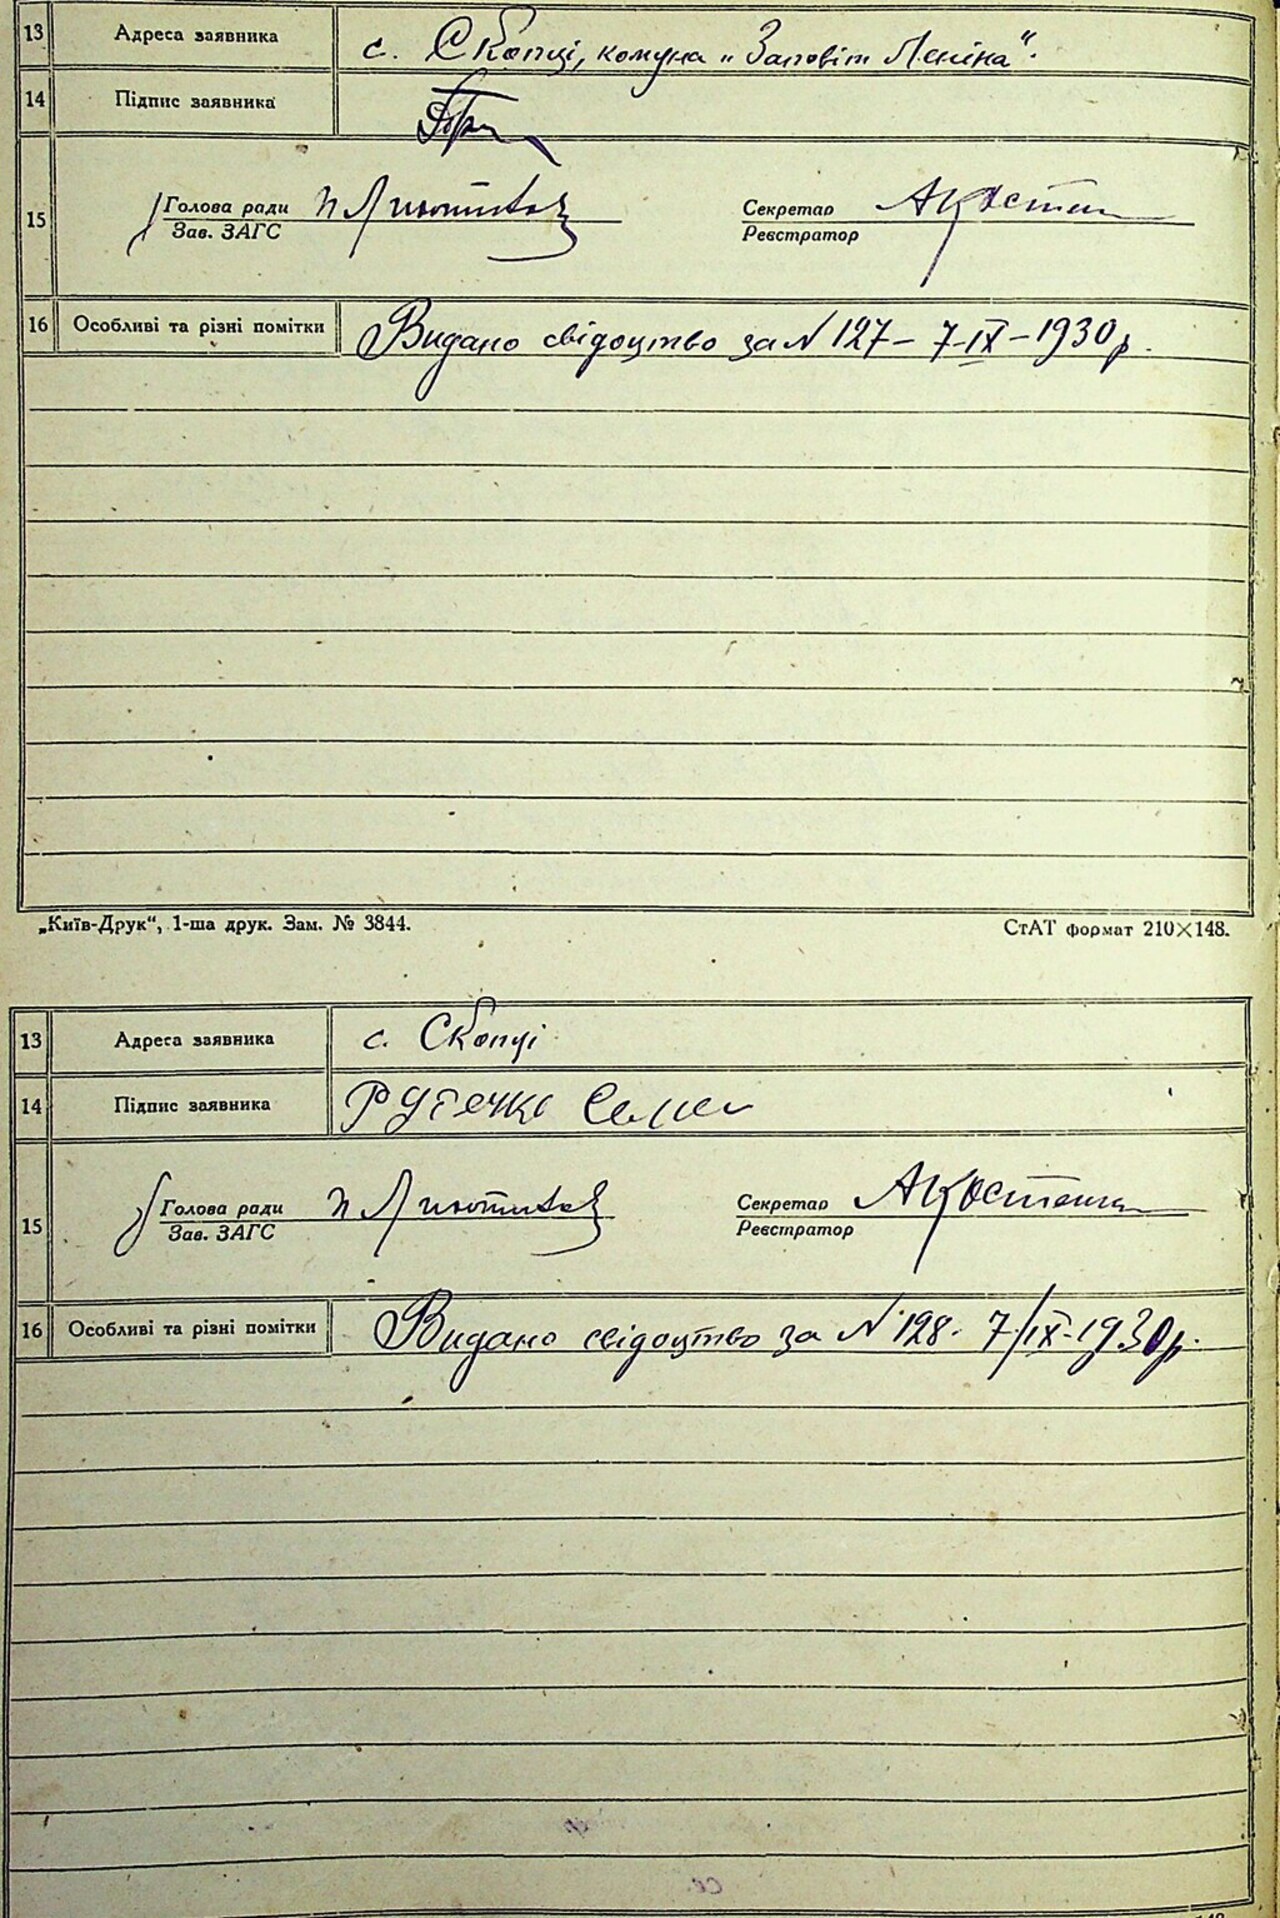 13 Адреса заявника с. Скопці, комуна „Заповіт Леніна".
14 Підпис заявника
15 Голова ради Секретар А Костен
Зав. ЗАГС Реєстратор
16 Особливі та різні помітки Видано свідоцтво за N 127 – 7-IX-1930 р.
„Київ-Друк", 1-ша друк. Зам. № 3844. СтАТ формат 210×148.
13 Адреса заявника с. Скопці
14 Підпис заявника
15 Голова ради Секретар А Костен
Зав. ЗАГС Реєстратор
16 Особливі та різні помітки Видано свідоцтво за N 128. 7/IX-1930 р.